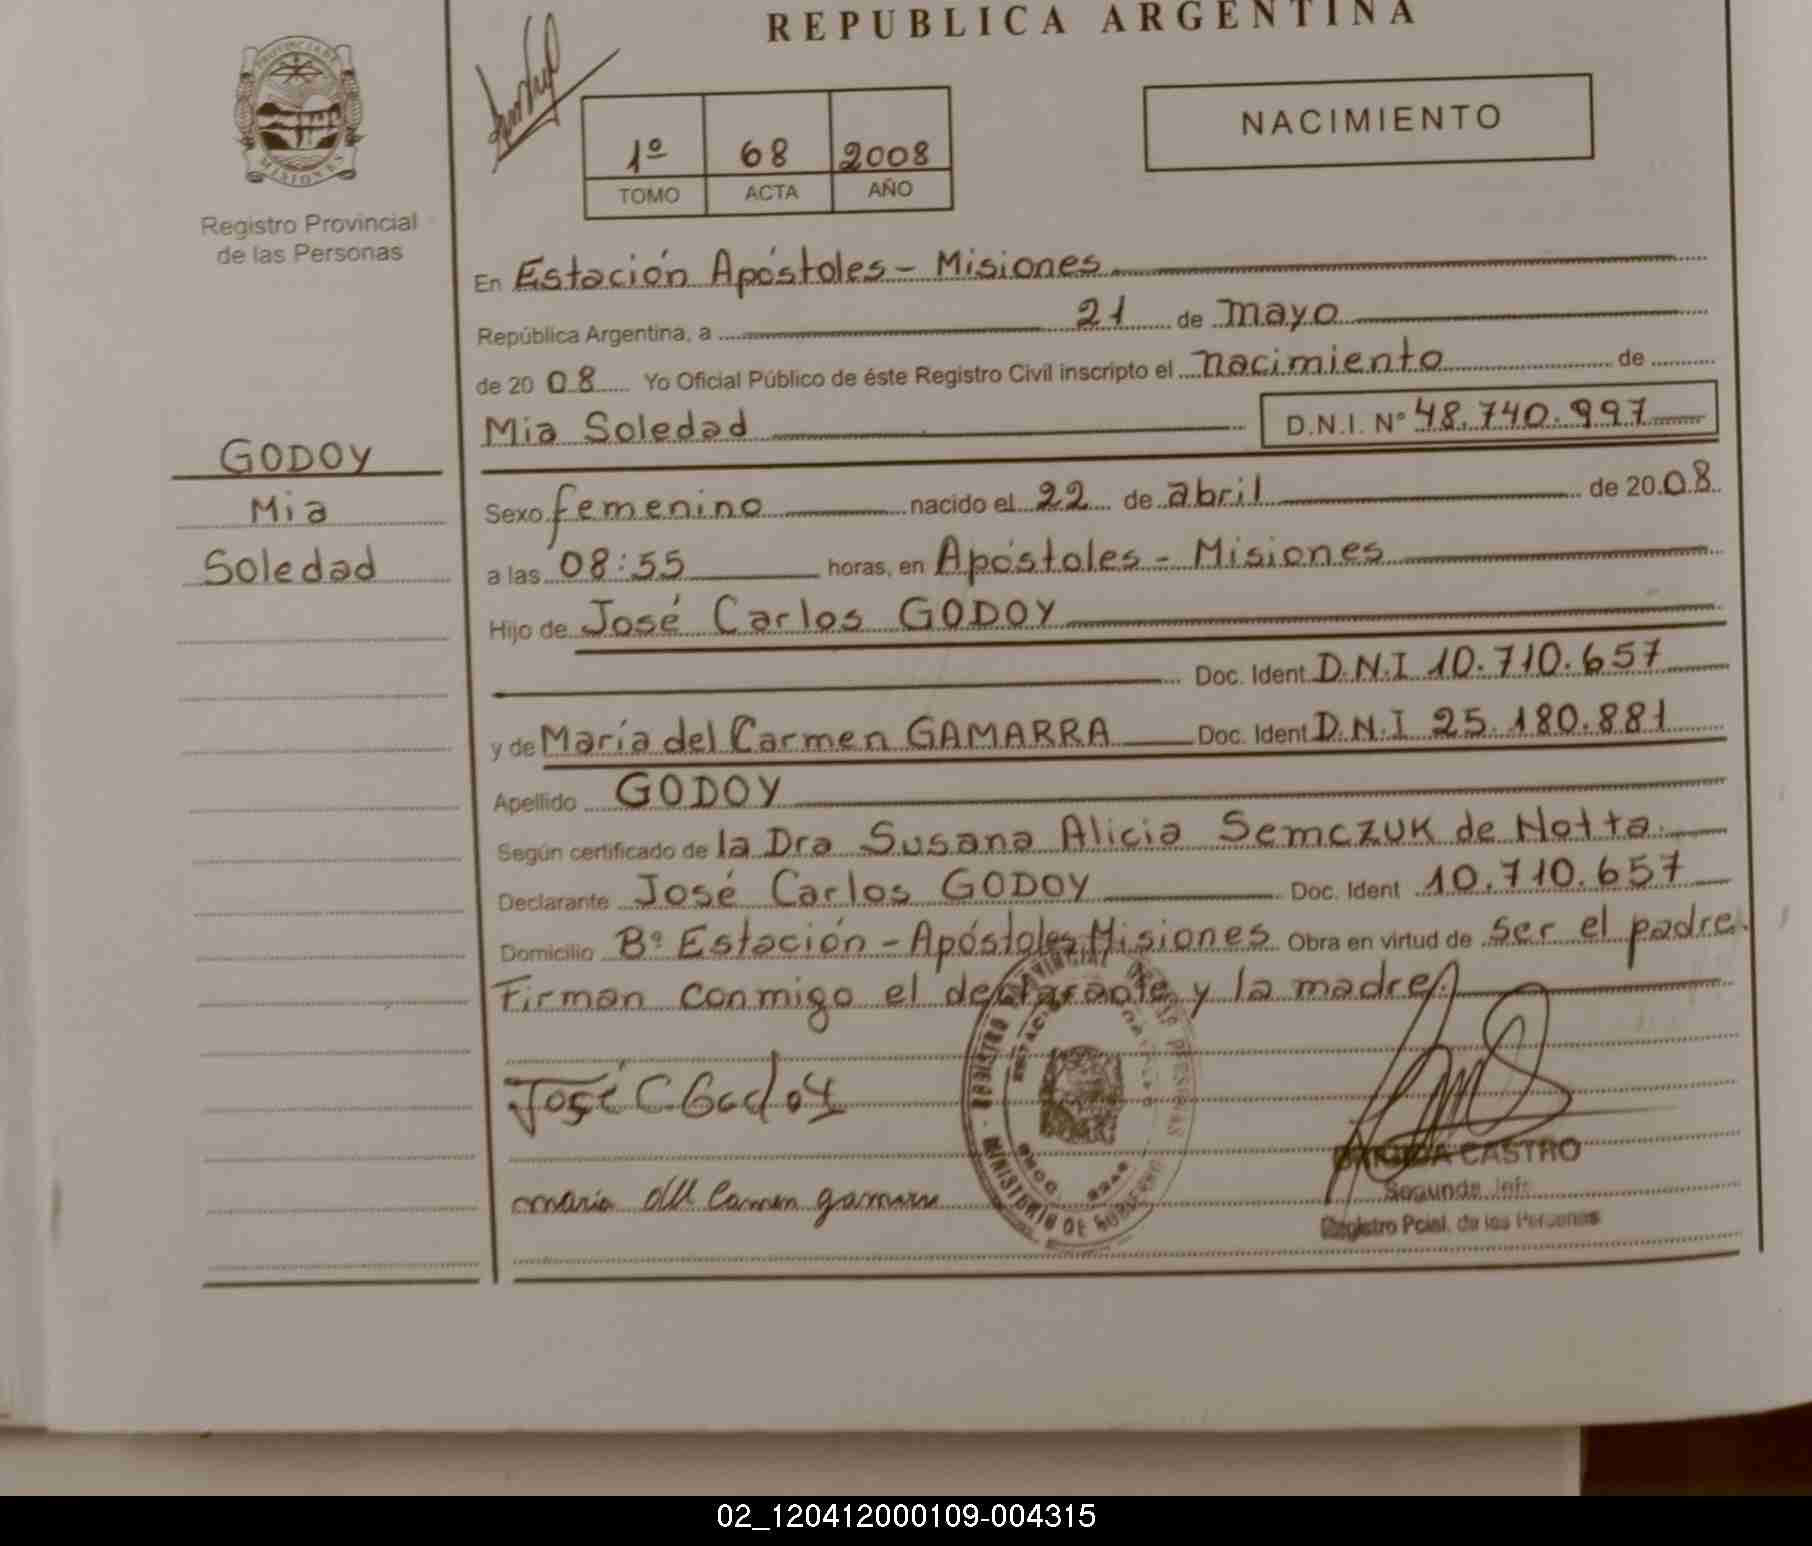 REPUBLICA ARGENTINA
PROVINCIA DE
MISIONES
Registro Provincial
de las Personas
NACIMIENTO
1º 68 2008
TOMO ACTA AÑO
En Estación Apóstoles - Misiones
República Argentina, a 21 de mayo
de 2008 Yo Oficial Público de éste Registro Civil inscripto el nacimiento de
Mia Soledad D.N.I. Nº 48.740.997
GODOY
Mia
Soledad
Sexo femenino nacido el 22 de abril de 2008
a las 08:55 horas, en Apóstoles - Misiones
Hijo de José Carlos GODOY
Doc. Ident D.N.I 10.710.657
y de María del Carmen GAMARRA Doc. Ident D.N.I 25.180.881
Apellido GODOY
Según certificado de la Dra Susana Alicia Semczuk de Notta
Declarante José Carlos GODOY Doc. Ident 10.710.657
Domicilio Bº Estación - Apóstoles Misiones Obra en virtud de ser el padre.
Firman conmigo el declarante y la madre.
José C Godoy
maria del Carmen gamarra
REGISTRO PROVINCIAL DE LAS PERSONAS
MINISTERIO DE GOBIERNO
CASTRO
Segunda Jefe
Registro Pcial. de las Personas
02_120412000109-004315